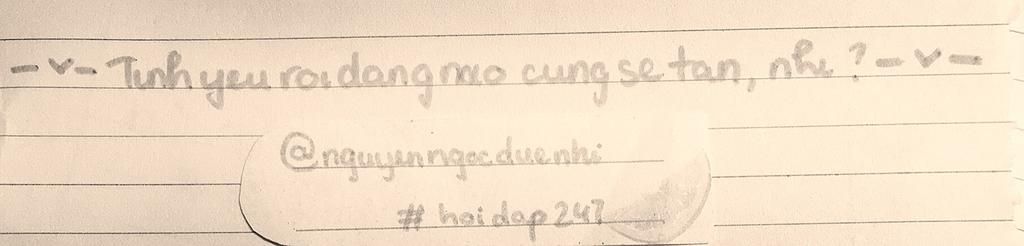 -v- Tinh yeu roi dang nao cung se tan, nhi? -v-
@nguyenngocduenhi
# hoidap247